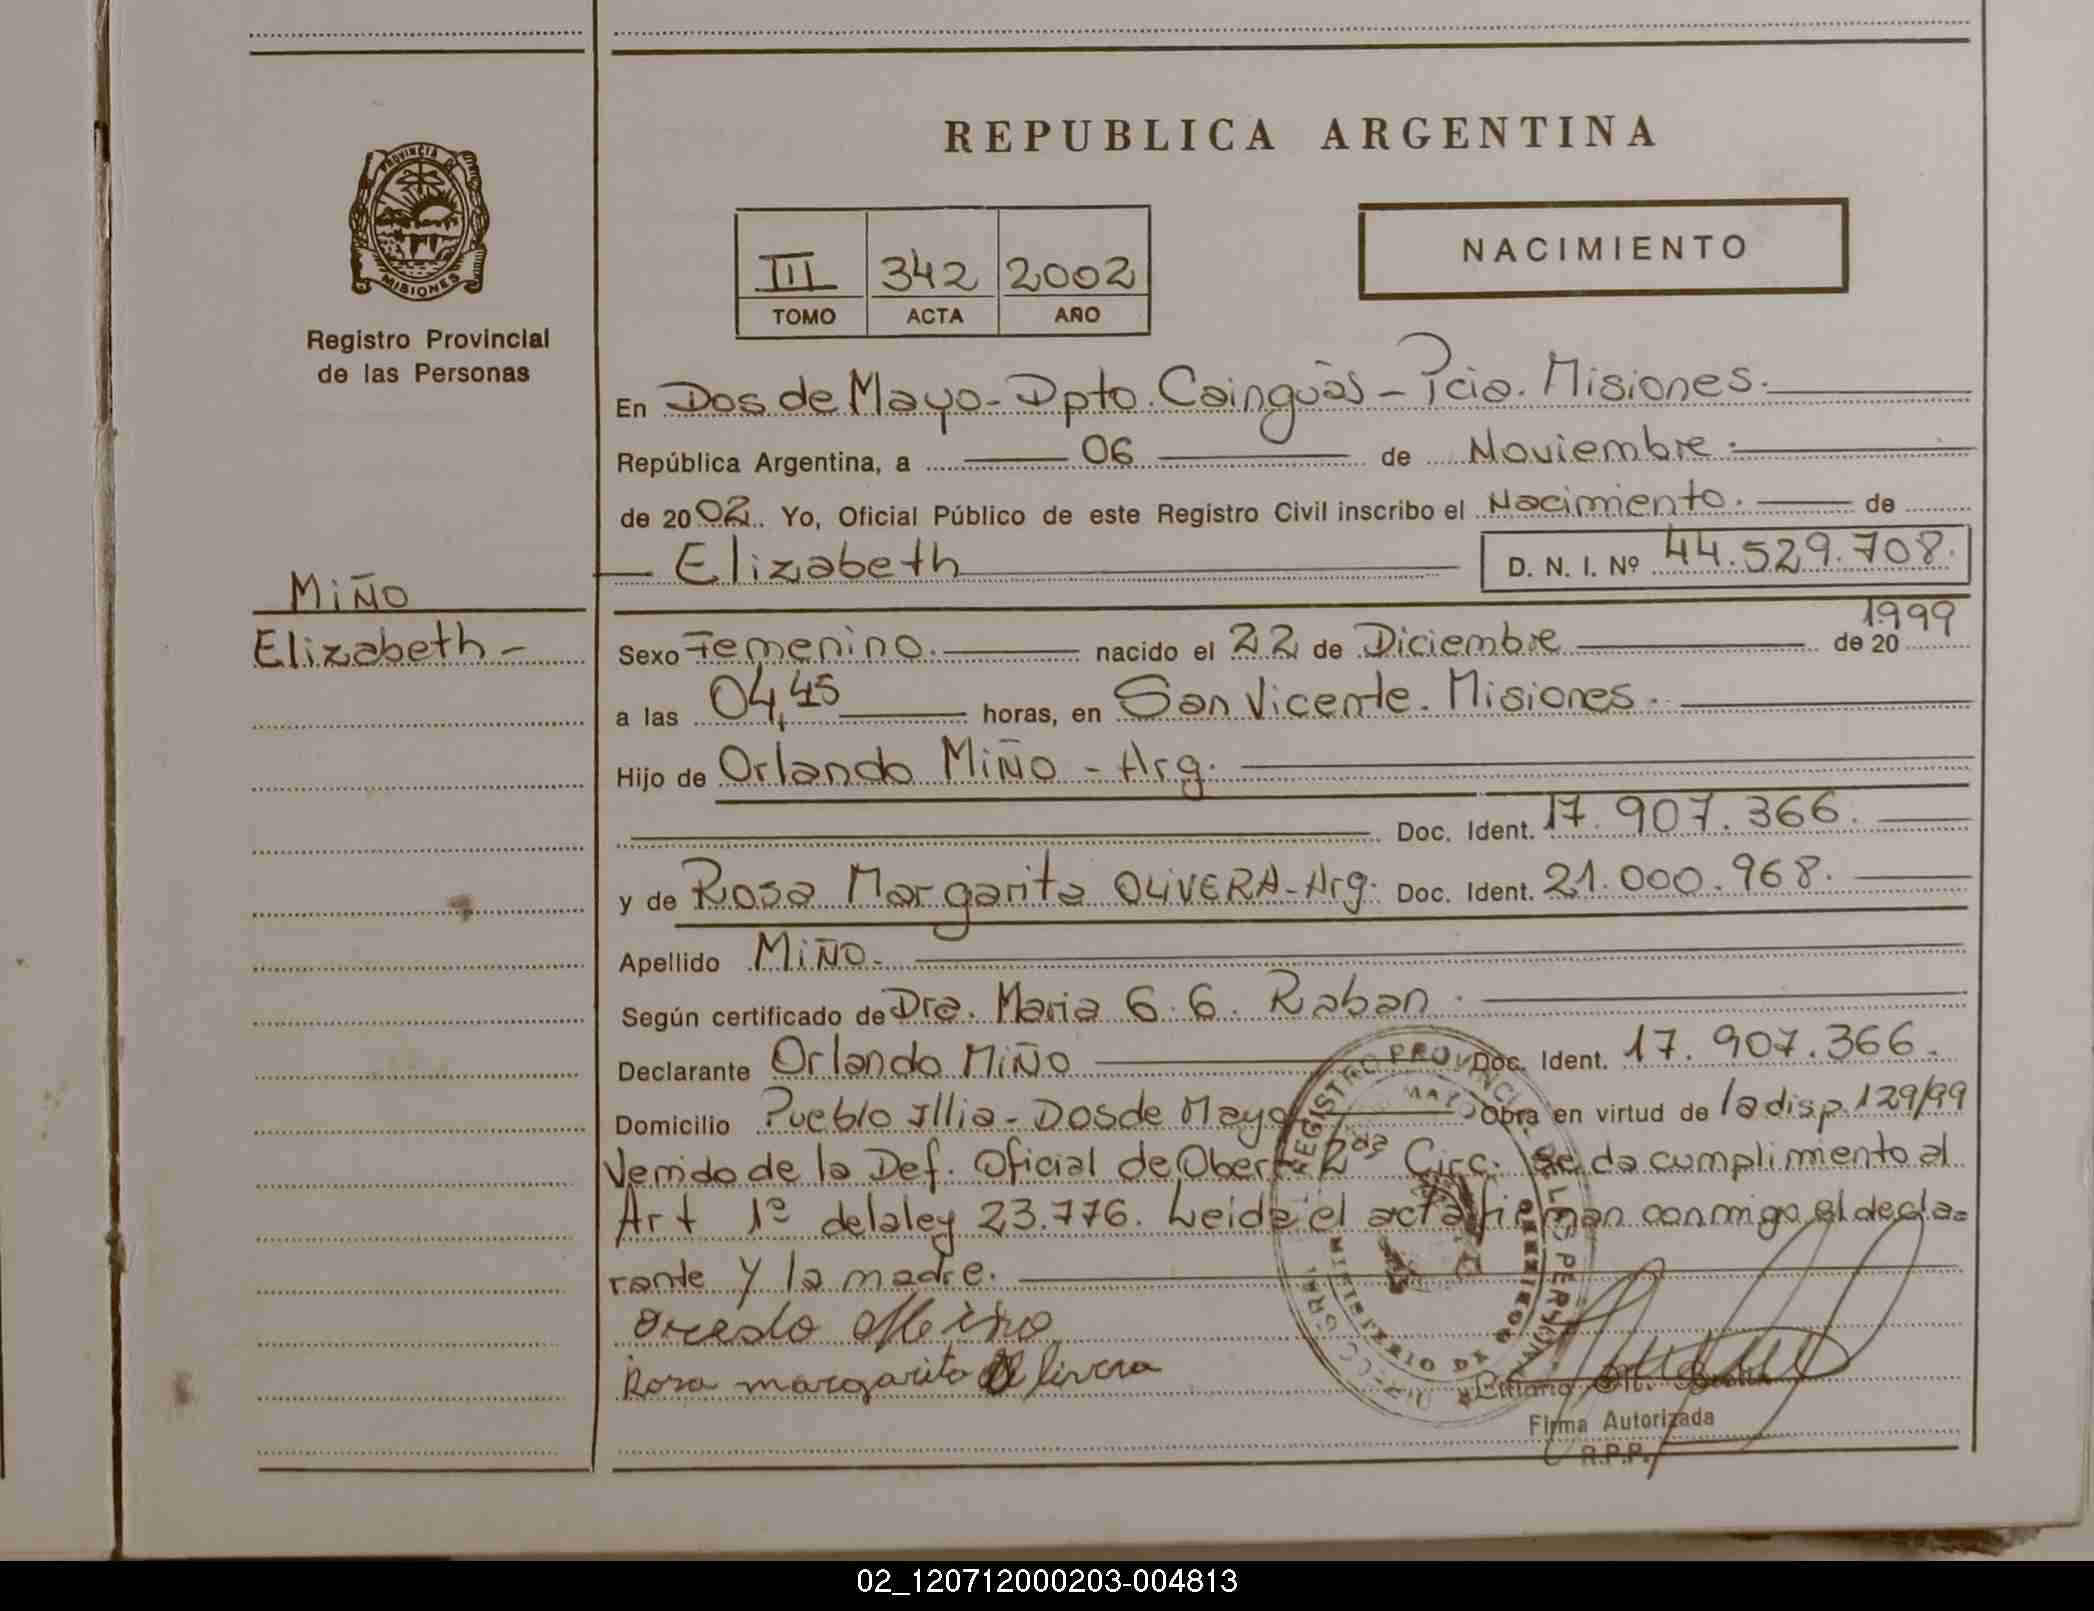 REPUBLICA ARGENTINA
PROVINCIA DE
MISIONES
Registro Provincial
de las Personas
III 342 2002
TOMO ACTA AÑO
NACIMIENTO
En Dos de Mayo - Dpto. Cainguàs - Pcia. Misiones.
República Argentina, a 06 de Noviembre.
de 2002. Yo, Oficial Público de este Registro Civil inscribo el Nacimiento. de
Elizabeth D. N. I. Nº 44.529.708.
MiÑo
Elizabeth -
Sexo Femenino. nacido el 22 de Diciembre de 20 1999
a las 04,45 horas, en San Vicente. Misiones.
Hijo de Orlando MiÑo - Arg.
Doc. Ident. 17.907.366.
y de Rosa Margarita OLiVERA - Arg. Doc. Ident. 21.000.968.
Apellido MiÑo.
Según certificado de Dra. Maria G. G. Raban.
Declarante Orlando MiÑo Doc. Ident. 17.907.366.
Domicilio Pueblo Illia - Dos de Mayo Obra en virtud de la disp. 129/99
Venido de la Def. Oficial de Obera 2da Circ. Se da cumplimiento al
Art 1º de la ley 23.776. Leida el acta firman conmigo el decla=
rante y la madre.
Rosa margarita Olivera
REGISTRO PROVINCIAL DE LAS PERSONAS
Firma Autorizada
R.P.P.
02_120712000203-004813